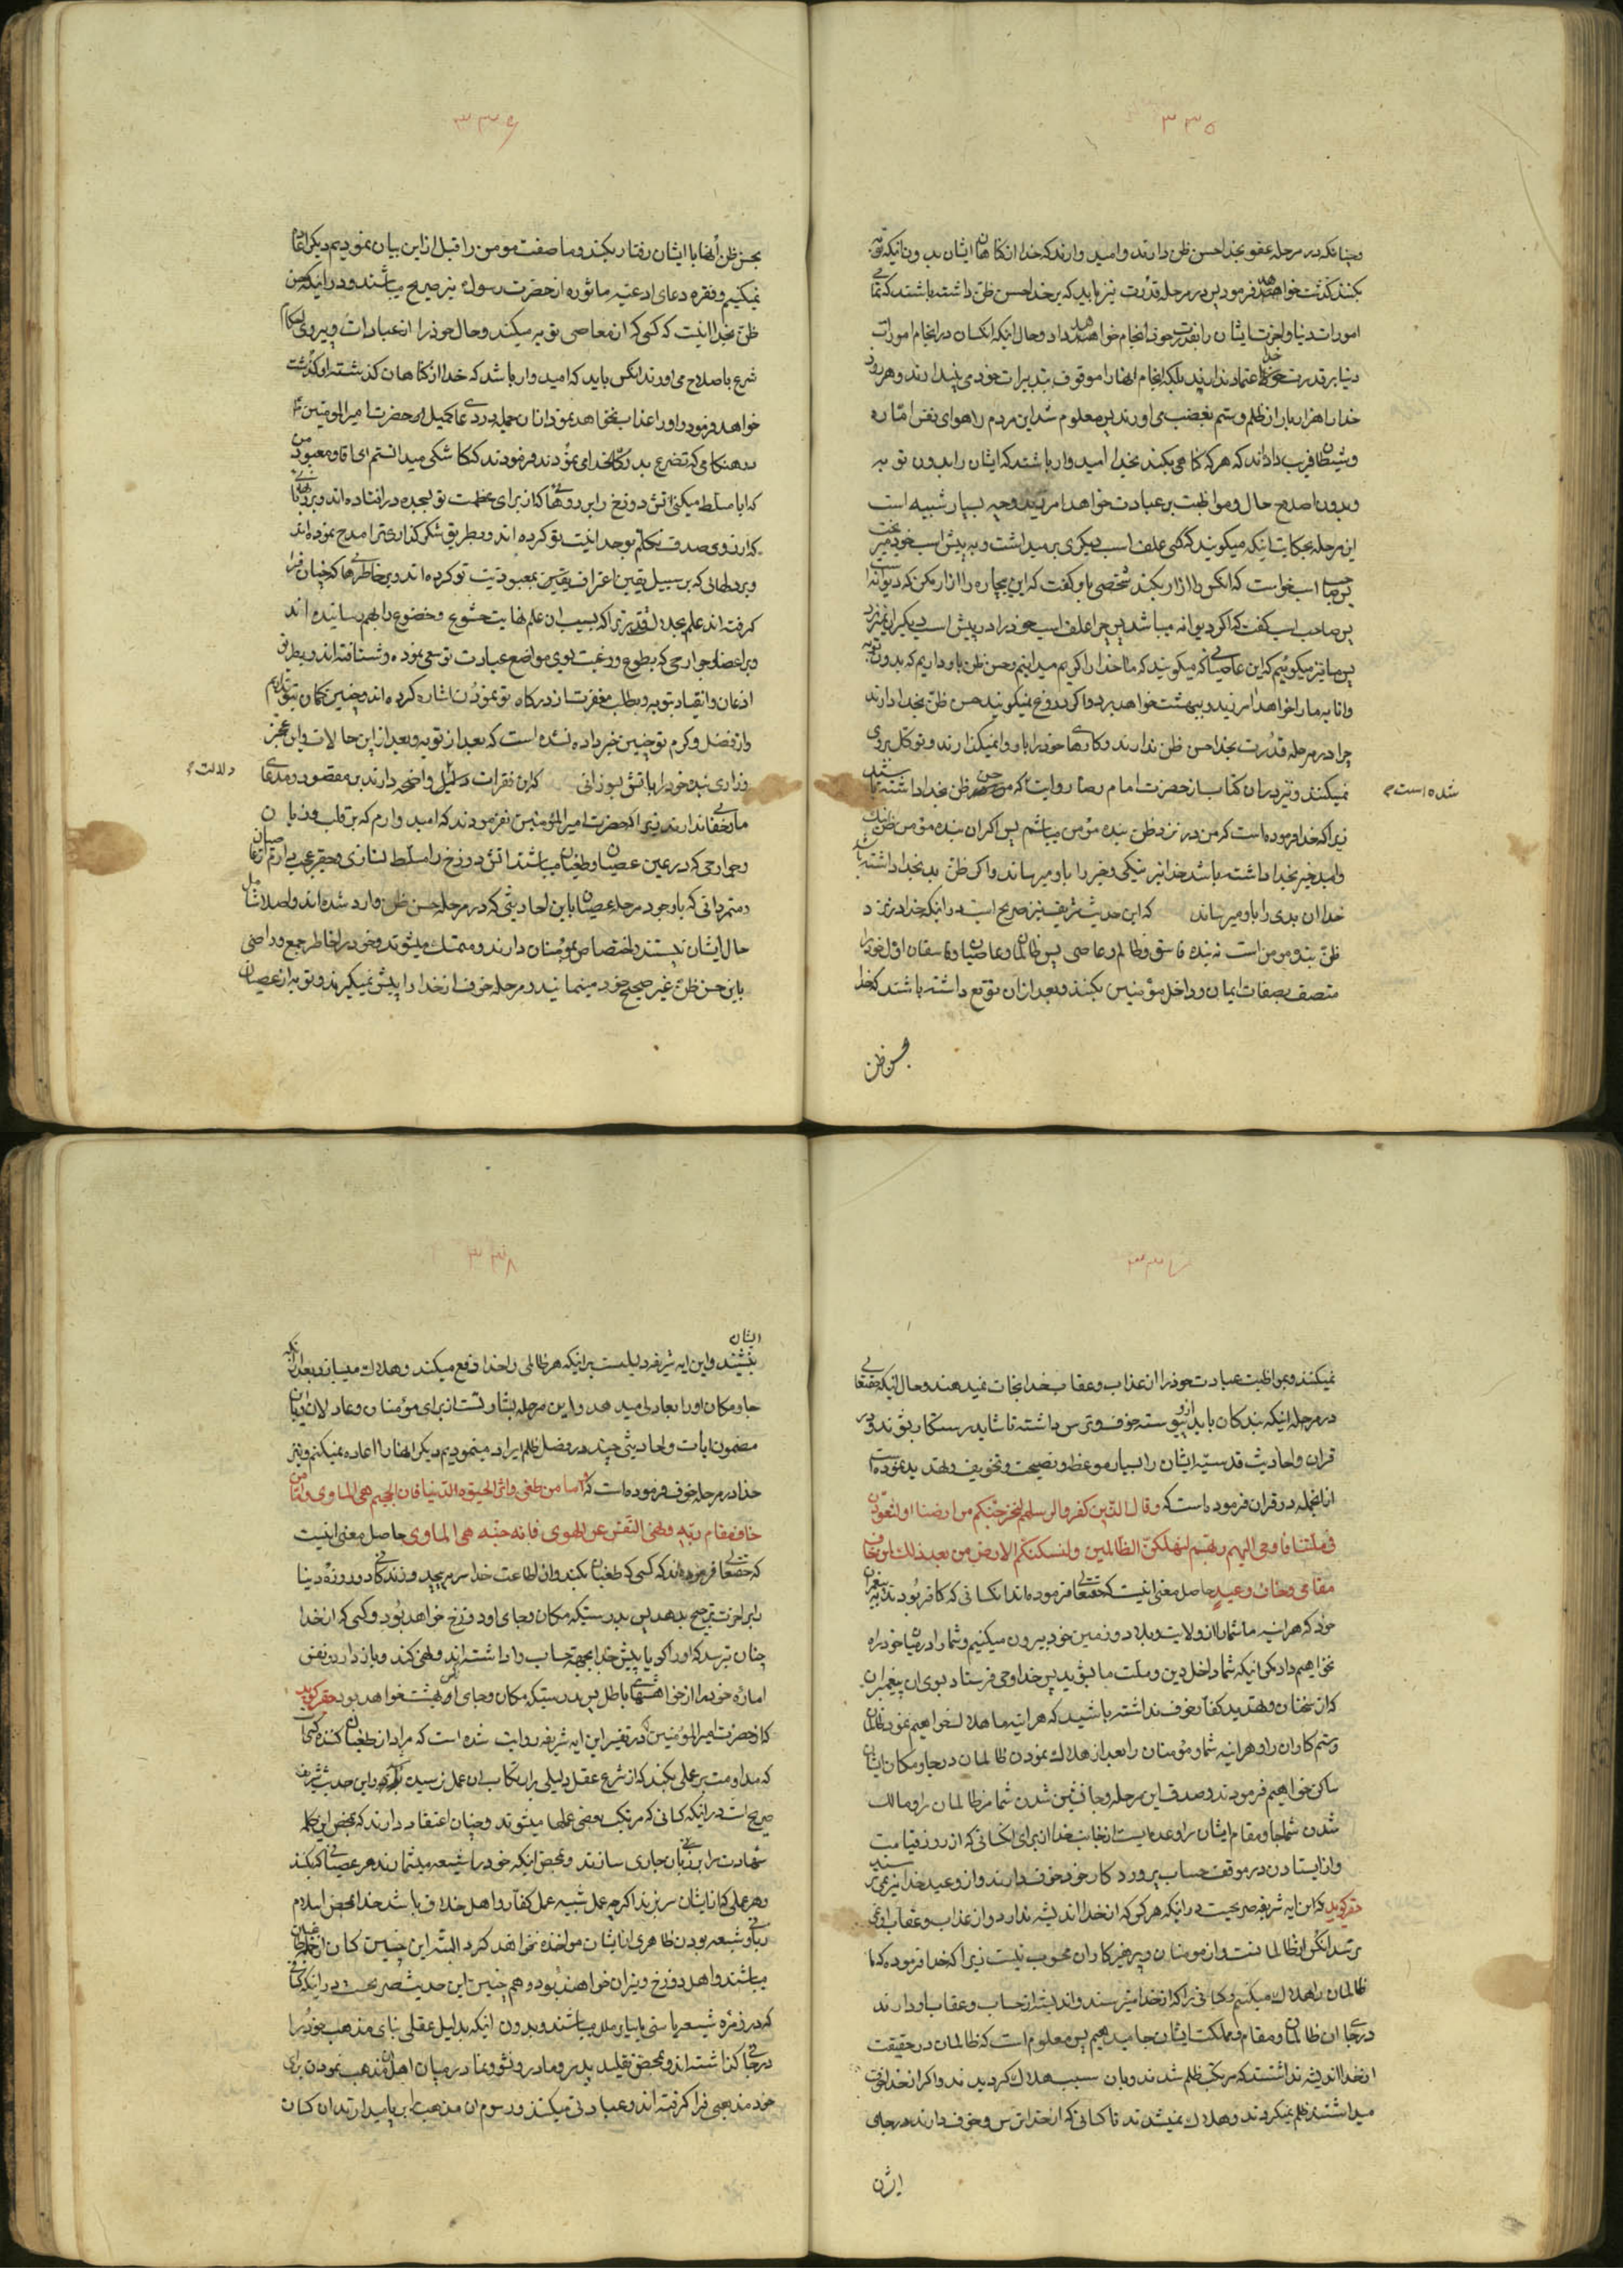 ۳۳۵
وچنانکه در مرحله عفو بخدا حسن ظن دارند و امید وارند که خدا از کناهان ایشان بدون انیکه توبه
بکنند کذشت خواهد فرمود پس در مرحله قدرت نیز باید که بر خدا حسن ظن داشته باشند که تمامی
امورات دنیا و اخرت ایشان را بقدرت خود انجام خواهد داد و حال انیکه انکسان در انجام امورات
دنیا بر قدرت خدا اعتماد ندارند بلکه انجام انها را موقوف بتدبیرات خود می پندارند و هر روز
خدا را هزار بار از ظلم و ستم بغضب می اورند پس معلوم شد این مردم را هوای نفس اماره
و شیطان فریب داداند که هر که کناهی بکند بخدا امیدوار باشند که ایشان را بدون توبه
و بدون اصلاح حال و مواظبت بر عبادت خواهد امرزید وچه بسیار شبیه است
این مرحله بحکایت انیکه میکویند کسی علف اسب دیکری بر میداشت و به پیش اسب خود میریخت
پس صاحب اسب خواست که انکس را ازار بکند شخصی باو کفت که این بیچاره را ازار مکن که دیوانه است
پس صاحب اسب کفت که اکر دیوانه میباشد پس چرا علف اسب خود را در پیش اسب دیکران نمیریزد
پس ما نیز میکوئیم که این عاصیانی که میکویند که ما خدا را کریم میدانیم و حسن ظن باو داریم که بدون توبه
وانابه ما را خواهد امرزید و ببهشت خواهد برد و اکر دروغ نمیکویند حسن ظن بخدا دارند
چرا در مرحله قدرت بخدا حسن ظن ندارند و کارهای خود را باو وا نمیکذارند و توکل بر وی
نمیکنند و نیز در ان کتاب از حضرت امام رضا روایت که مومن حسن ظن بخدا داشته باشند
شده است
زیرا که خدا فرموده است که من در نزد ظن بنده مؤمن میباشم پس اکر ان بنده مؤمن ظن نیک
و امید خیر بخدا داشته باشد خدا نیز نیکی و خیر را باو میرساند و اکر ظن بد بخدا داشته باشد
خدا ان بدی را باو میرساند که این حدیث شریف نیز صریح است در انیکه خدا در نزد
ظن بنده مومن است نه بنده فاسق و ظالم و عاصی پس ظالمان و عاصیان و فاسقان اول خود را
متصف بصفات ایمان و داخل مؤمنین بکنند و بعد از ان توقع داشته باشند که خدا
بحسن ظن
۳۳۶
بحسن ظن انها با ایشان رفتار بکند و ما صفت مومن را قبل از این بیان نمودیم دیکر اقامه
نمیکنیم و فقره دعای ادعیه ماثوره از حضرت رسول نیز صریح میباشند و در انیکه حسن
ظن بخدا انیست که کسی که از معاصی توبه میکند و حال خود را از عبادات و پیروی احکام
شرع باصلاح می اورند انکس باید که امیدوار باشد که خدا از کناهان کذشته او کذشت
خواهد فرمود و او را عذاب نخواهد نمود از ان جمله در دعای کمیل از حضرت امیر المومنین
در هنکامی که تضرع بدرکاه خدا می نمودند فرمودند که کاشکی میدانستم ای اقا و معبود من
که ایا مسلط میکنی اتش دوزخ را بر رویهائی که از برای عظمت تو بسجده در افتاده اند و بر زبانهائی
که از روی صدق تکلم بوحدانیت تو کرده اند و بطریق شکر کذاری ترا مدح نموده اند
و بر دلهائی که بر سبیل یقین اعتراف یقین بمعبودیت تو کرده اند و بر خاطرهائی که چنان فرا
کرفته اند علم بجلال و قدرت ترا که بسبب ان علم نهایت خشوع و خضوع را بهم رسانیده اند
و بر اعضا و جوارحی که بطوع و رغبت بسوی مواضع عبادت تو سعی نموده و شتافته اند و بطریق
اذعان و انقیاد بتوبه و بطلب مغفرت از درکاه تو نمودن اشاره کرده اند و چنین کمان بتو نداریم
و از فضل و کرم تو چنین خبر داده نشده است که بعد از توبه و بعد از این حالات و این عجز
و زاری بنده خود را باتش بسوزانی که این فقرات دلیل واضحه دارند بر مقصود و مدعای
دلالت
ما و خفا ندارند زیرا که حضرت امیر المؤمنین نفرمودند که امید وارم که بر قلب و زبان
و جوارحی که در عین عصیان و طغیان میباشند اتش دوزخ را مسلط نسازی
و متمردانی که با وجود مرحله عصیان با این احادیثی که در مرحله حسن ظن وارد شده اند و اصلا شامل
حال ایشان نیستند و اختصاص بمؤمنان دارند و متمسک میشوند و خود را خاطر جمع و راضی
باین حسن ظن غیر صحیح خود مینمایند و مرحله خوف از خدا را پیش نمیکیرند و توبه از عصیان
۳۳۷
نمیکنند و بمواظبت عبادت خود را از عذاب و عقاب خدا نجات نمیدهند و حال انیکه حقتعالی
در مرحله انیکه بندکان باید از او پیوسته خوف و ترس داشته تا شاید رستکار بشوند و در
قران و احادیث قدسیه ایشان را بسیار موعظه و نصیحت و تخویف و تهدید نموده است
از انجمله در قران فرموده است که وقال الذین کفروا لرسلهم لنخرجنکم من ارضنا او لتعودن
فی ملتنا فاوحی الیهم ربهم لنهلکن الظالمین ولنسکننکم الارض من بعدهم ذلک لمن خاف
مقامی و خاف وعید حاصل معنی انیست که حقتعالی فرموده اند انکسانی که کافر بودند به پیغمبران
خود که هر اینه ما شما را از ولایت و بلاد و زمین خود بیرون میکنیم و شما را در میان خود راه
نخواهیم داد مکر انیکه شما داخل دین و ملت ما بشوید پس خدا وحی فرستاد بسوی ان پیغمبران
که از سخنان و تهدید کفار خوف نداشته باشید که هر اینه ما هلاک خواهیم نمود ظالمان
و ستم کاران را و هر اینه شما و مؤمنان را بعد از هلاک نمودن ظالمان در جا و مکان ایشان
ساکن خواهیم فرمود و صدق این مرحله و جانشین شدن شما مر ظالمان را و مالک
شدن شما جا و مقام ایشان را وعده ایست از جانب خدا از برای انکسانی که از روز قیامت
و از ایستادن در موقف حساب پروردکار خود خوف دارند و از وعید خدا نیز میترسند
حقیر کوید که این ایه شریفه صریحست در انیکه هر کس که از خدا اندیشه ندارد و از عذاب و عقاب او نمی
ترسد انکس از ظالمانست و از مومنان و پرهیزکاران محسوب نیست زیرا که خدا فرموده که ما
ظالمان را هلاک میکنیم و کسانی را که از خدا میترسند و اندیشه از حساب و عقاب او دارند
در جای ان ظالمان و مقام و مملکت ایشان جا میدهیم پس معلوم است که ظالمان در حقیقت
از خدا اندیشه نداشتند که مرتکب ظلم شدند و بان سبب هلاک کردیدند و اکر از خدا خوف
میداشتند ظلم نمیکردند و هلاک نمیشدند تا کسانی که از خدا ترس و خوف دارند در جای
ایشان
۳۳۸
ایشان
بنشینند و این ایه شریفه دلیلست بر انیکه هر ظالمی را خدا دفع میکند و هلاک مینماید و بعد از انکه
جا و مکان او را بعادلی میدهد و این مرحله بشارتست از برای مؤمنان و عادلان و بیان
مضمون ایات و احادیثی چند در فصل ظلم ایراد مینمودیم دیکر انها را اعاده نمیکنم و نیز
خدا در مرحله خوف فرموده است که فاما من طغی واثر الحیوة الدنیا فان الجحیم هی الماوی واما من
خاف مقام ربه ونهی النفس عن الهوی فان الجنة هی الماوی حاصل معنی انیست
که حقتعالی فرموده اند که کسی که طغیان بکند و از اطاعت خدا سر بپیچد و زندکانی دو روزه دنیا
را بر اخرت ترجیح بدهد پس بدرستیکه مکان و جای او دوزخ خواهد بود و کسی که از خدا
چنان بترسد که او را کویا پیش خدا بجهة حساب وا داشته اند و نهی کند و باز دارد نفس
اماره خود را از خواهشهای باطل پس بدرستیکه مکان و جای او بهشت خواهد بود حقیر کوید
که از حضرت امیر المؤمنین در تفسیر این ایه شریفه روایت شده است که مراد از طغیان کننده کسی است
که مداومت بر عملی بکند که از شرع و عقل دلیلی بر ارتکاب ان عمل نرسیده و این حدیث شریف
صریح است در انیکه کسانی که مرتکب بعضی عملها میشوند و چنان اعتقاد دارند که بمحض این کلمه
شهادت را بر زبان جاری سازند و بمحض انیکه خود را شیعه میشمارند هر عصیانی که بکنند
و هر عملی که از ایشان سر بزند اکرچه عمل شبیه عمل کفار و اهل خلاف باشد خدا بمحض اسلام
زبانی و شیعه بودن ظاهری از ایشان مواخذه نخواهد کرد البته این چنین کسان از طاغیان
میباشند و اهل دوزخ و نیران خواهند بود و هم چنین این حدیث صریحست در انیکه کسانی
که در زمره شیعه یا سنی یا سایر ملل میباشند و بدون انیکه بدلیل عقلی بنای مذهب خود را
در جائی کذاشته اند و بمحض تقلید پدر و مادر و نشو و نما در میان اهل ان مذهب نمودن برای
خود مذهبی فرا کرفته اند و عبادتی میکنند و رسوم ان مذهب را بر پا میدارند ان کسان